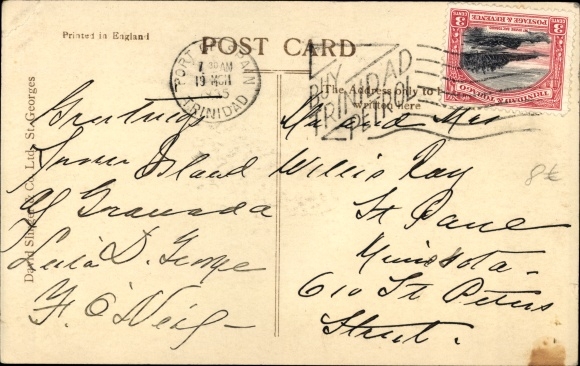 Printed in England
POST CARD
PORT OF SPAIN
7 30 AM
19 MCH
TRINIDAD
BUY
TRINIDAD
3 CENTS 3 CENTS
POSTAGE & REVENUE
TRINIDAD & TOBAGO
The Address only to be
written here
David Slinger & Co. Ltd., St. Georges
Greetings
From Island
of Granada
D. George
F. O'Neig
Mr and Mrs
Willis Ray
St. Paul
Minisota.
610 St Peters
Street.
8€